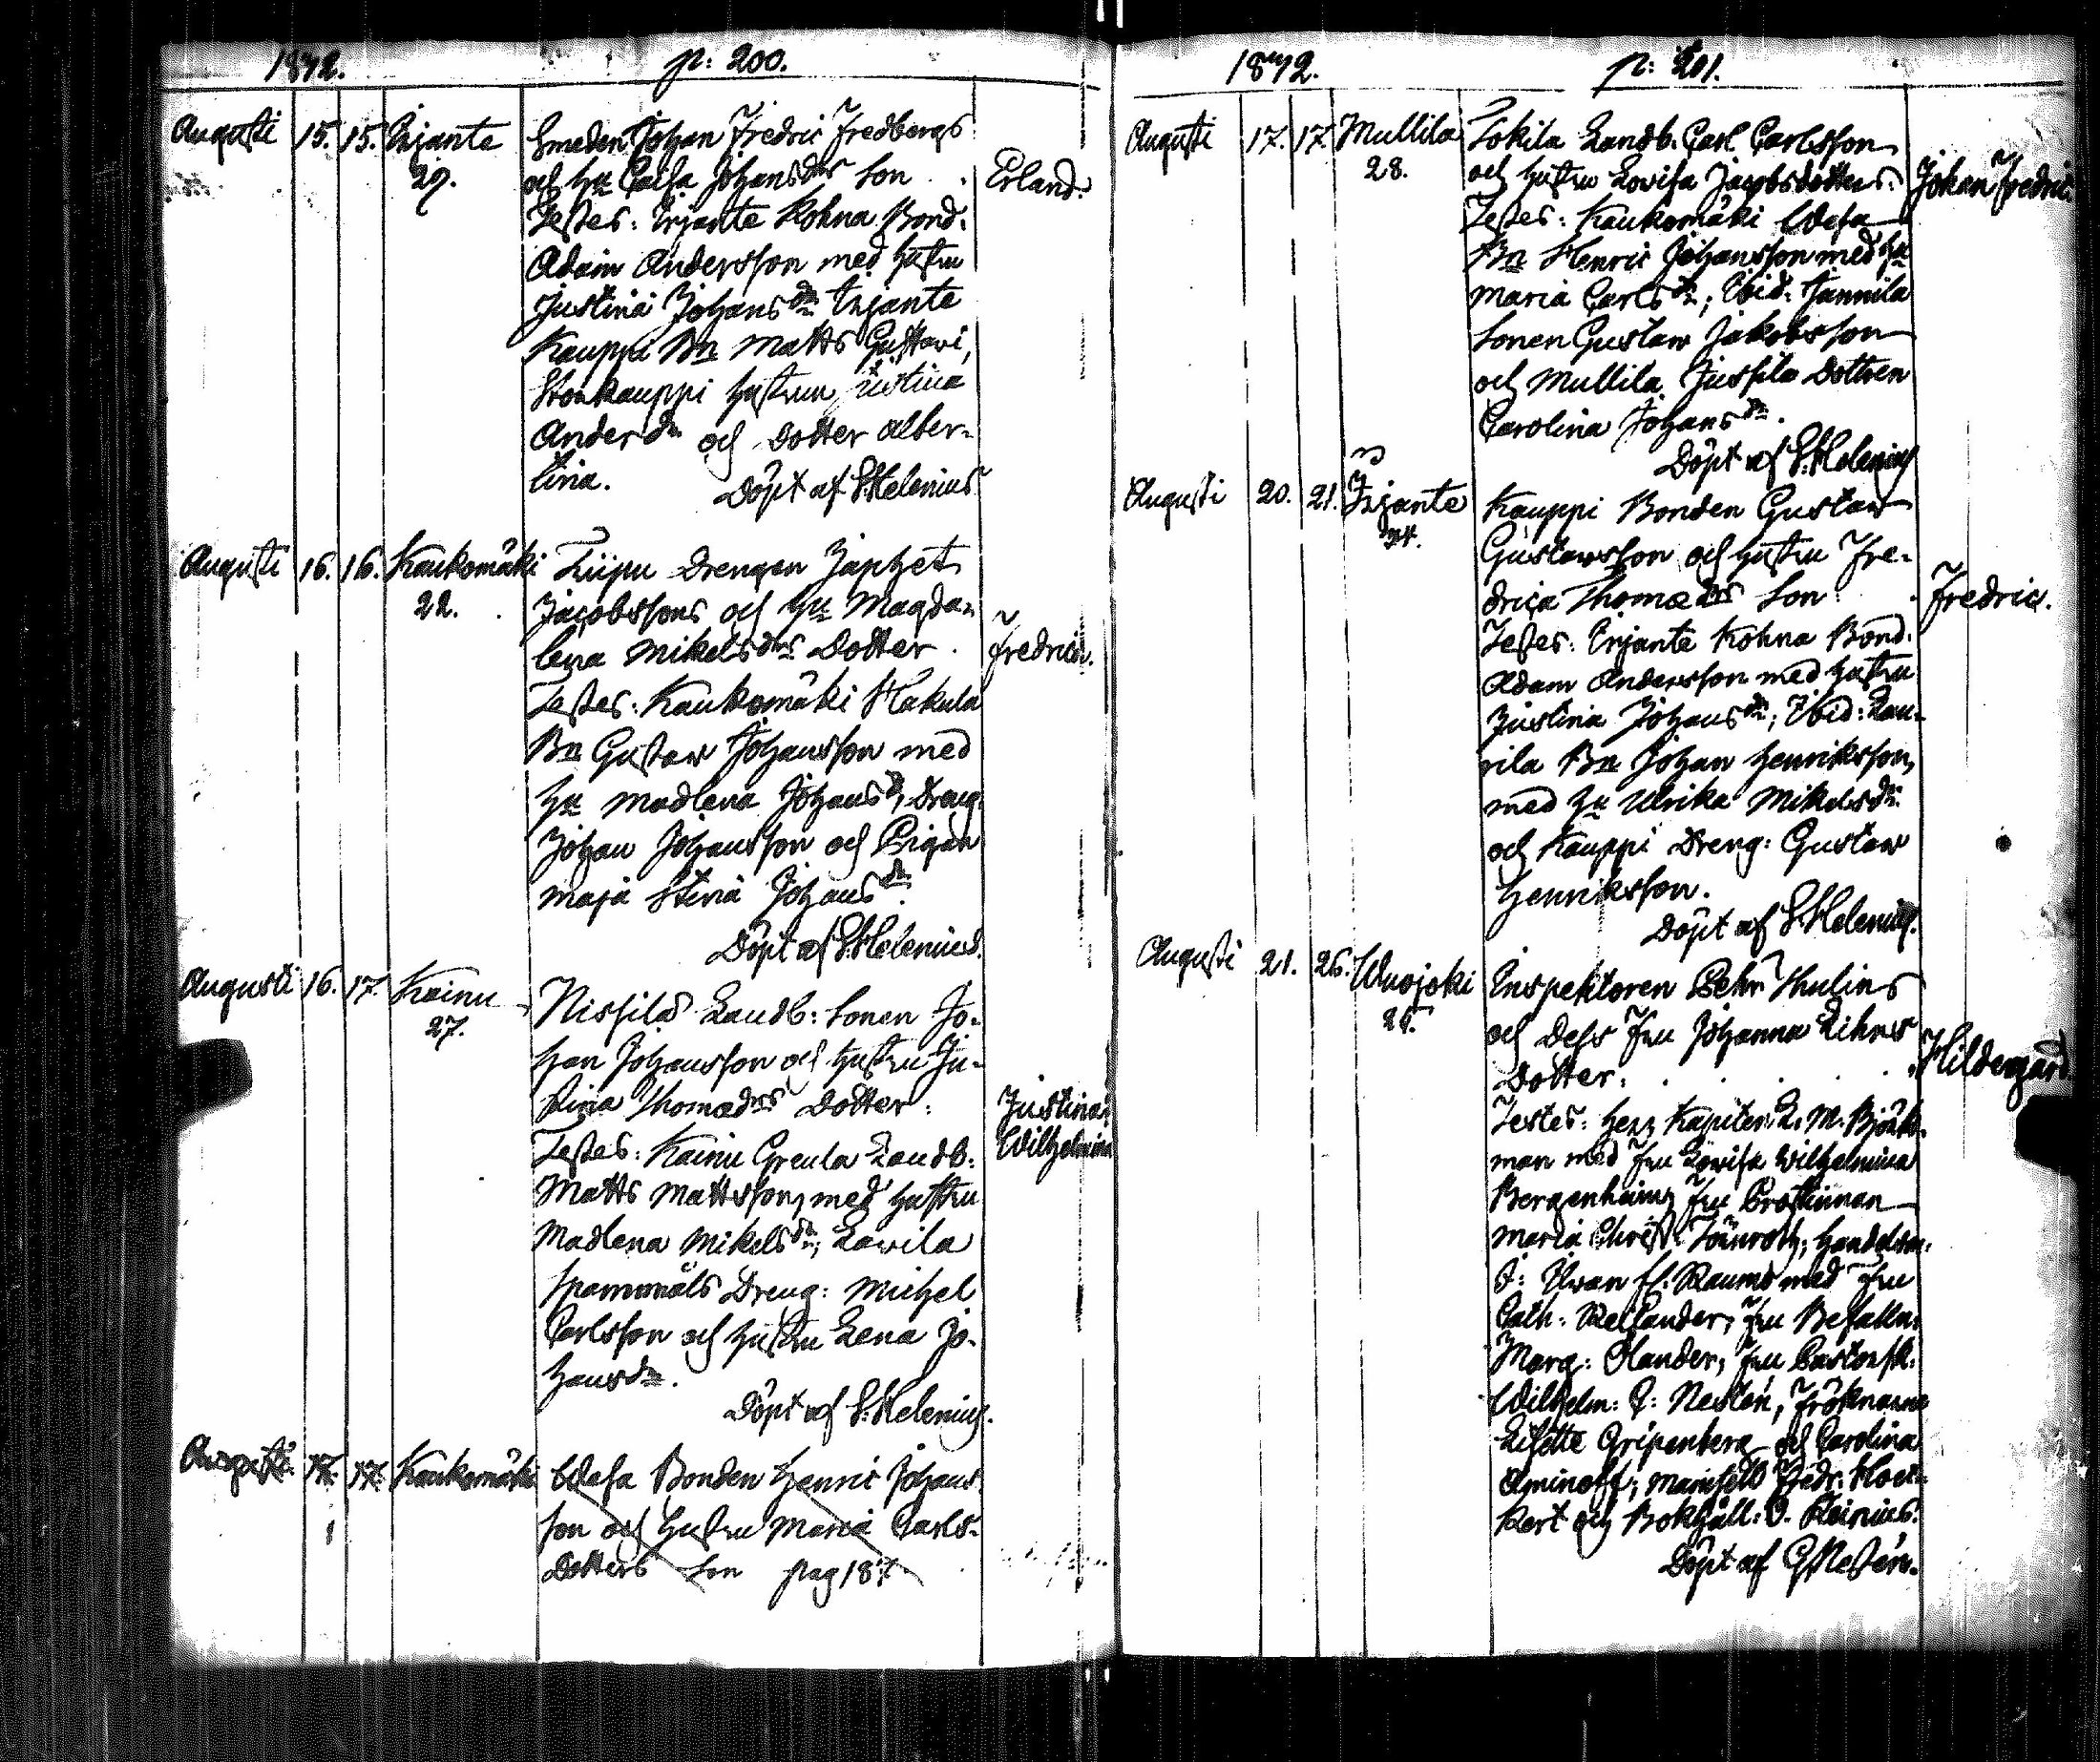 1842. p: 200.
Augusti 15. 15. Irjante Smeden Johan Fredric Fredbergs
29. och hu Caisa Johansdrs Son . Erland.
Testes: Irjante Kohna Bond.
Adam Andersson med hustru
Justina Johansdr Irjante
Kauppi Bn Matts Gustavi,
Storkauppi hustrun Justina
Andersdr och Dotter Alber-
tina. Döpt af S. Helenius
Augusti 16. 16. Kaukomäki Liipu Drengen Japhet
22. Jacobssons och hu Magda-
lena Mikelsdrs Dotter . Fredrica.
Testes: Kaukomäki Hakula
Bn Gustaw Johansson med
hu Madlena Johansd, Dreng.
Johan Johansson och Pigan
Maja Stina Johansdr.
Döpt af S. Helenius.
Augusti 16. 17. Kainu Nissilä Landb: Sonen Jo-
27. han Johansson och hustru Ju-
stina Thomædrs Dotter: Justina
Wilhelmina
Testes: Kainu Greula Landb:
Matts Mattsson, med hustru
Madlena Mikelsdr; Lawila
Spannmåls Dreng: Michel
Carlsson och hustru Lena Jo-
hansdr.
Döpt af S. Helenius.
Augusti 17. 17. Kaukomäki Udesa Bonden Henric Johans
son och hustru Maria Carls-
Dotters Son pag 187
1842. p: 201.
Augusti 17. 17. Mullila Tokila Landb. Carl Carlsson
28. och hustru Lovisa Jacobsdotters: Johan Fredric.
Testes: Kaukomäki Udesa
Bn Henric Johansson med hu
Maria Carlsdr; Ibid: Jannila
Sonen Gustaw Jakobsson
och Mullila Jussila Dottren
Carolina Johansdr.
Döpt af S. Helenius
Augusti 20. 21. Irjante Kauppi Bonden Gustaw
Gustawsson och hustru Fre-
drica Thomædrs Son . Fredric.
Testes: Irjante Kohna Bond.
Adam Andersson med hustru
Justina Johansdr; Ibid: Lau-
rila Bn Johan Henriksson,
med hu Ulrika Mikelsdr
och Kauppi Dreng: Gustaw
Henriksson.
Döpt af S. Helenius.
Augusti 21. 26. Wuojoki Inspektoren Pehr Thulins
och dess Fru Johanna Lihrs
Dotter: . . . . Hildergard.
Testes: Herr Kapiten L. M. Björk-
man med Fru Lowisa Wilhelmina
Bergenheim, Fru Prostinnan
Maria Christ. Tönroth; Handelsm:
J: Ilwan fr. Raumo med Fru
Cath: Rellander; Fru Befalln:
Marg: Olander, Fru Pastorsk:
Wilhelm: C: Nestén, Fröknarne
Lisette Gripenberg och Carolina
Aminoff; Mamsell Fredr:
och Bokhåll: O. Heinius.
Döpt af G Nestén.